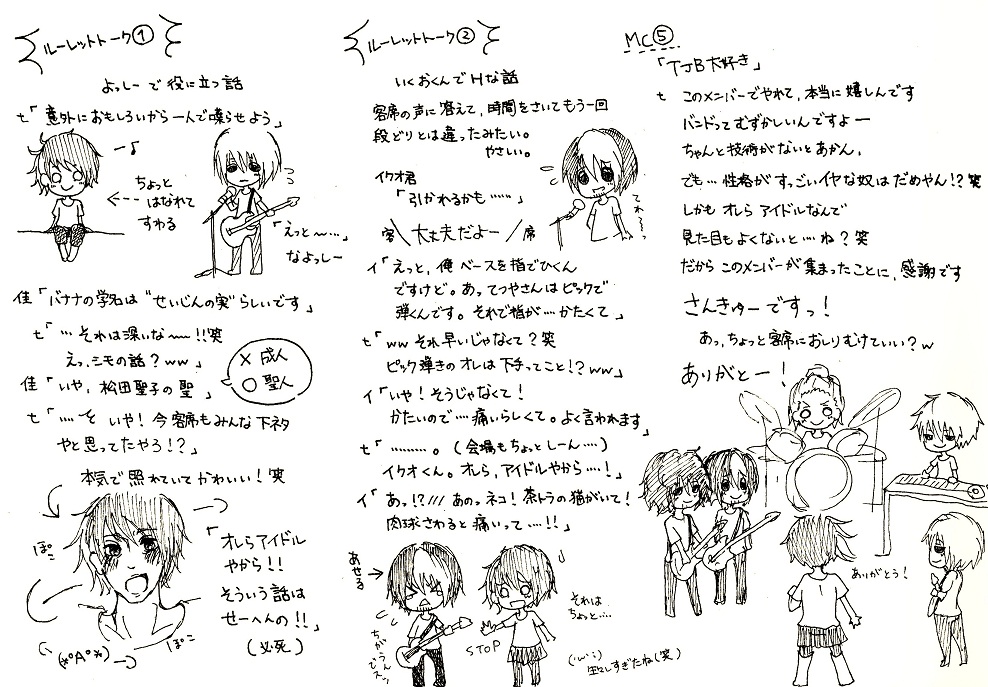 ルーレットトーク①
よっしーで役に立つ話
セ「意外におもしろいから一人で喋らせよう」
ちょっと
はなれて
すわる
「えっと〜…」
なよっしー
佳「バナナの学名は"せいじんの実"らしいです」
セ「…それは深いな〜!!笑
えっ、シモの話?ww」
佳「いや、松田聖子の聖」
× 成人
○ 聖人
セ「…そ いや!今客席もみんな下ネタ
やと思ってたやろ!?」
本気で照れていてかわいい!笑
「オレらアイドル
やから!!
そういう話は
せーへんの!!」
(必死)
ぽこ
ぽこ
ルーレットトーク②
いくおくんでHな話
客席の声に答えて,時間をさいてもう一回
段どりとは違ったみたい。
やさしい。
イクオ君
「引かれるかも……」
てれ〜っ
客\大丈夫だよー/席
イ「えっと,俺ベースを指でひくん
ですけど。あってつやさんはピックで
弾くんです。それで指が…かたくて」
セ「ww それ早いじゃなくて?笑
ピック弾きのオレは下手ってこと!?ww」
イ「いや!そうじゃなくて!
かたいので…痛いらしくて。よく言われます」
セ「………。(会場もちょっとしーん…)
イクオくん。オレら,アイドルやから…!」
イ「あっ!?/// あの。ネコ!茶トラの猫がいて!
肉球さわると痛いって…!!」
あせる
STOP
それは
ちょっと…
MC⑤
「TJB大好き」
セ このメンバーでやれて,本当に嬉しんです
バンドってむずかしいんですよー
ちゃんと技術がないとあかん。
でも…性格がすっごいイヤな奴はだめやん!?笑
しかもオレらアイドルなんで
見た目もよくないと…ね?笑
だからこのメンバーが集まったことに,感謝です
さんきゅーですっ!
あっ,ちょっと客席におしりむけていい?w
ありがとー!
ありがとう!